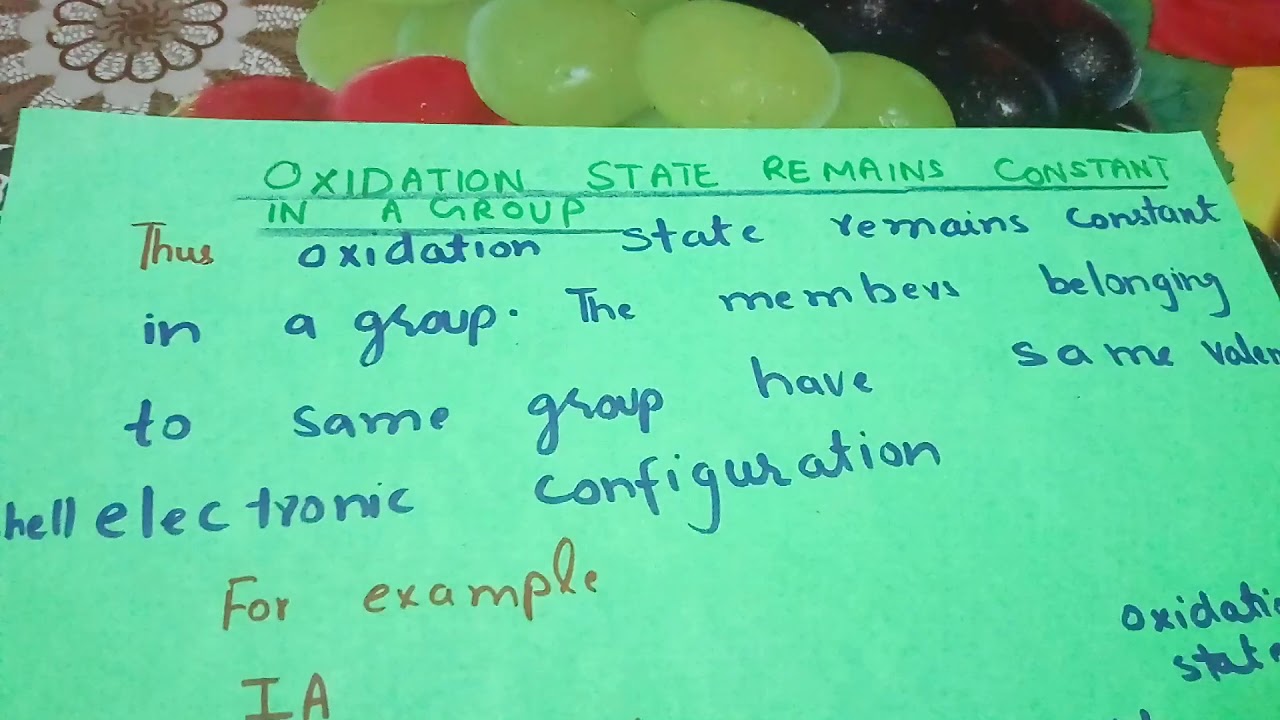 OXIDATION STATE REMAINS CONSTANT
IN A GROUP
Thus oxidation state remains constant
in a group. The members belonging
to same group have same valen
hell electronic configuration
For example
oxidatio
state
IA